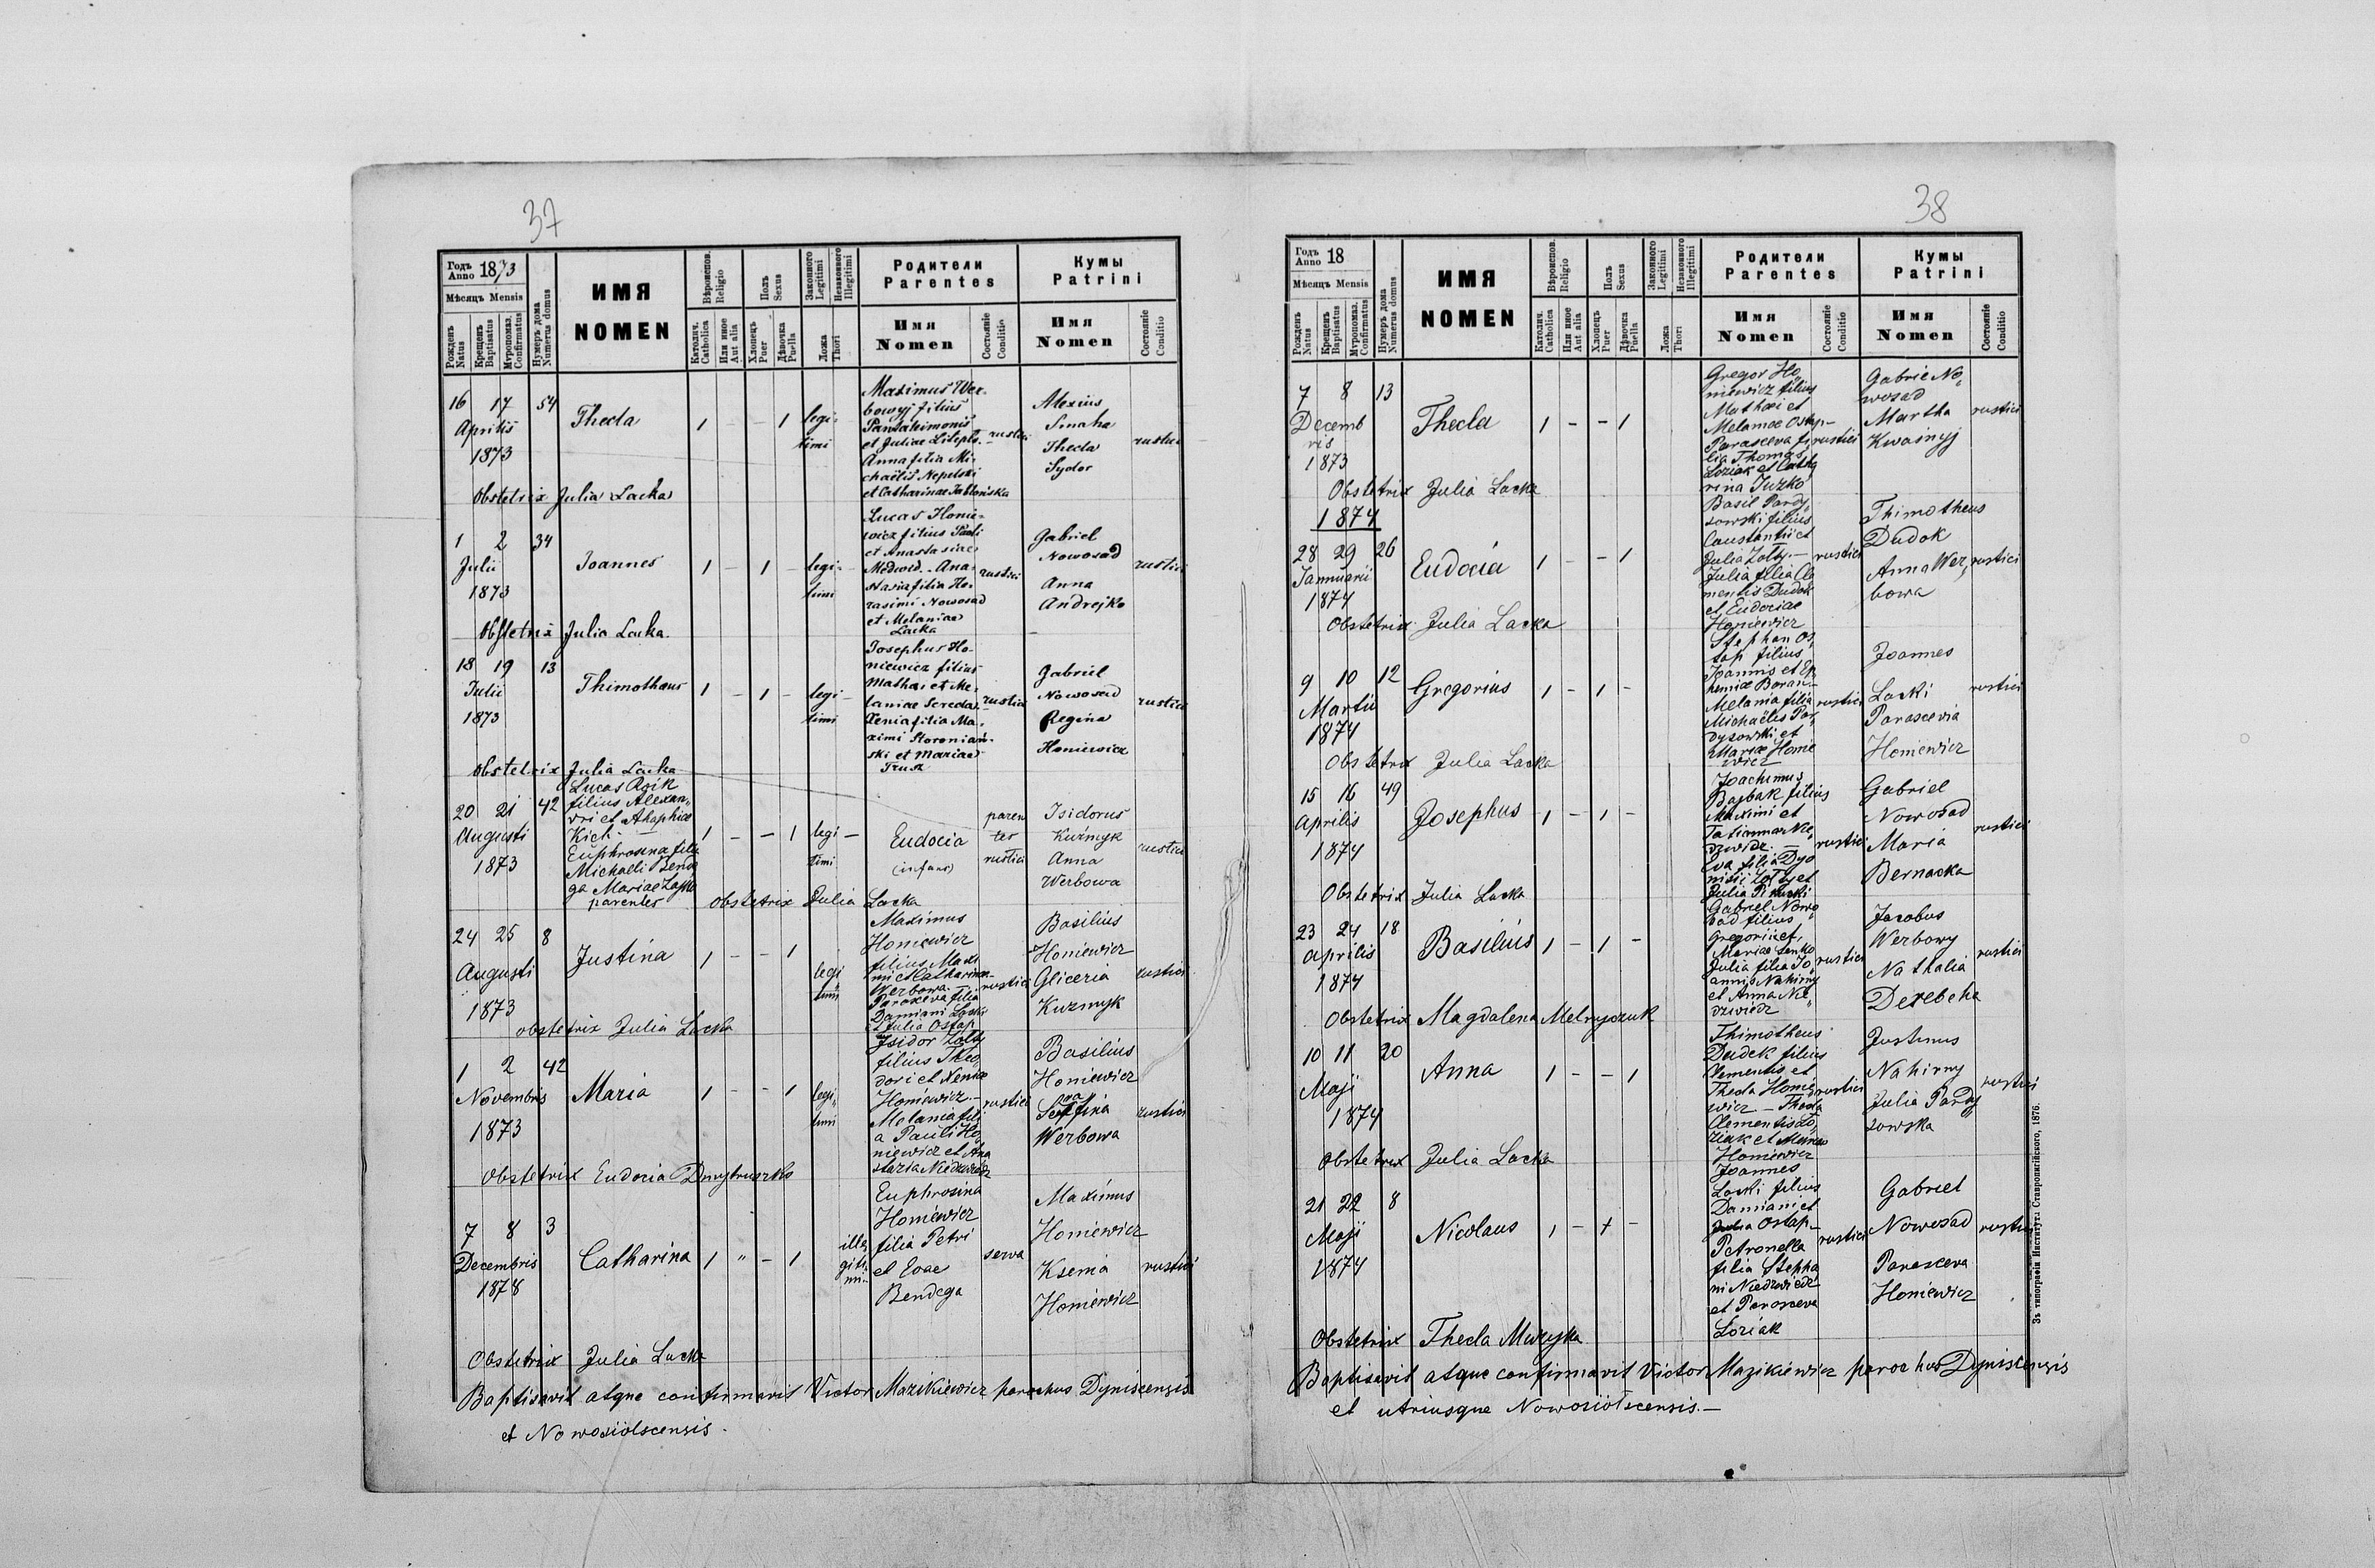 37
Годъ Anno 1873
Мѣсяцъ Mensis
Рожденъ Natus
Крещенъ Baptisatus
Мѵропомаз. Confirmatus
Нумеръ дома Numerus domus
ИМЯ
NOMEN
Вѣроиспов. Religio
Католич. Catholica
Или иное Aut alia
Полъ Sexus
Хлопецъ Puer
Дѣвочка Puella
Законного Legitimi
Незаконного Illegitimi
Ложа Thori
Родители Parentes
Имя Nomen
Состояніе Conditio
Кумы Patrini
Имя Nomen
Состояніе Conditio
16 17 54
Aprilis
1873
Thecla
1 - - 1
legi-
timi
Maximus Wer-
bowyj filius
Pantalimonis
et Juliae
Anna filia Mi-
chaëlis Nepelski
et Catharinae Jabłońska
rustici
Alexius
Smaha
Thecla
Sydor
rustici
Obstetrix Julia Lacka
1 2 34
Julii
1873
Joannes
1 - 1 -
legi-
timi
Lucas Honie-
wicz filius Pauli
et Anastasiae
Medwed. - Ana-
stasia filia He-
rasimi Nowosad
et Melaniae
Lacka
rustici
Gabriel
Nowosad
Anna
Andrejko
rustici
Obstetrix Julia Lacka.
18 19 13
Julii
1873
Thimotheus
1 - 1 -
legi-
timi
Josephus Ho-
niewicz filius
Mathaei et Me-
laniae Sereda. -
Xenia filia Ma-
ximi Storoniań-
ski et Mariae
Trusz
rustici
Gabriel
Nowosad
Regina
Honiewicz
rustici
Obstetrix Julia Lacka
20 21 42
Augusti
1873
Lucas
filius Alexan-
dri et Ahaphiae
Kich -
Euphrosina filia
Michaeli Bende
ga Mariae
parentes
1 - - 1
legi-
timi
Eudocia
(infans)
paren
tes
rustici
Isidorus
Kuźmyk
Anna
Werbowa
rustici
obstetrix Julia Lacka
24 25 8
Augusti
1873
Justina
1 - - 1
legi
timi
Maximus
Honiewicz
filius Maxi
mi et Catharinae
Werbowa -
Parasceva filia
Damiani Lacki
et Julia Ostap
rustici
Basilius
Honiewicz
Gliceria
Kuzmyk
rustici
obstetrix Julia Lacka
1 2 42
Novembris
1873
Maria
1 - - 1
legi-
timi
Isidor Zołty
filius Theo
dori et Xeniae
Honiewicz -
Melania fili
a Pauli Ho
niewicz et Ana
stazia Niedzwiedz
rustici
Basilius
Honiewicz
Werbowa
rustici
Obstetrix Eudocia Dmytruszko
7 8 3
Decembris
1878
Catharina
1 " - 1
ille-
giti-
mi -
Euphrosina
Honiewicz
filia Petri
et Evae
Bendega
serva
Maximus
Honiewicz
Ksenia
Honiewicz
rustici
Obstetrix Julia Lacka
Baptisavit atque confirmavit Victor Mazikiewicz parochus Dyniscensis
et Nowosiółscensis.
38
Годъ Anno 18
Мѣсяцъ Mensis
Рожденъ Natus
Крещенъ Baptisatus
Мѵропомаз. Confirmatus
Нумеръ дома Numerus domus
ИМЯ
NOMEN
Вѣроиспов. Religio
Католич. Catholica
Или иное Aut alia
Полъ Sexus
Хлопецъ Puer
Дѣвочка Puella
Законного Legitimi
Незаконного Illegitimi
Ложа Thori
Родители Parentes
Имя Nomen
Состояніе Conditio
Кумы Patrini
Имя Nomen
Состояніе Conditio
7 8 13
Decemb
ris
1873
Thecla
1 - - 1
Gregor Ho-
niewicz filius
Mathaei et
Melaniae Ostap -
Parasceva fi
lia Thomas
Łoziak et Catha
rina Juzko
rustici
Gabrie No-
wosad
Martha
Kwaśnyj
rustici
Obstetrix Julia Lacka
1874
28 29 26
Jannuarii
1874
Eudocia
1 - - 1
Basil Pardy-
sowski filius
Constantii et
Julia Zołty. -
Julia filia Cle
mentis Dudok
et Eudociae
Honiewicz
rustici
Thimotheus
Dudok
Anna Wer-
bowa
rustici
Obstetrix Julia Lacka
9 10 12
Martii
1874
Gregorius
1 - 1 -
Stephan Os-
tap filius
Joannis et Ep
hemiae Boran -
Melania filia
Michaëlis Par-
dysowski et
Mariae Honie
wicz
rustici
Joannes
Lacki
Parascevia
Honiewicz
rustici
Obstetrix Julia Lacka
15 16 49
Aprilis
1874
Josephus
1 - 1 -
Joachimus
Bajbak filius
Maximi et
Tatiannae Nie-
dzwidz. -
Eva filia Dyo
nisii Zołty et
Julia
rustici
Gabriel
Nowosad
Maria
Bernacka
rustici
Obstetrix Julia Lacka
23 24 18
Aprilis
1874
Basilius
1 - 1 -
Gabriel Nowo
sad filius
Gregorii et
Mariae Senko
Julia filia Jo-
annis Nahirny
et Anna Nie-
dzwiedz
rustici
Jacobus
Werbowy
Nathalia
Derebeha
rustici
Obstetrix Magdalena Melnyczuk
10 11 20
Maji
1874
Anna
1 - - 1
Thimotheus
Dudek filius
Clementis et
Thecla Honie
wicz - Thecla
Clementis Ło-
ziak et
Honiewicz
rustici
Justinus
Nahirny
Julia Pardy
sowska
rustici
Obstetrix Julia Lacka
21 22 8
Maji
1874
Nicolaus
1 - 1 -
Joannes
Lacki filius
Damiani et
Julia Ostap -
Petronella
filia Stepha
ni Niedzwiedz
et Parasceva
Łoziak
rustici
Gabriel
Nowosad
Parasceva
Honiewicz
rustici
Obstetrix Thecla Muzyka
Baptisavit atque confirmavit Victor Mazikiewicz parochus Dyniscensis
et utriusque Nowosiółscensis. -
Зъ типографіи Институт. Ставропигійского, 1876.